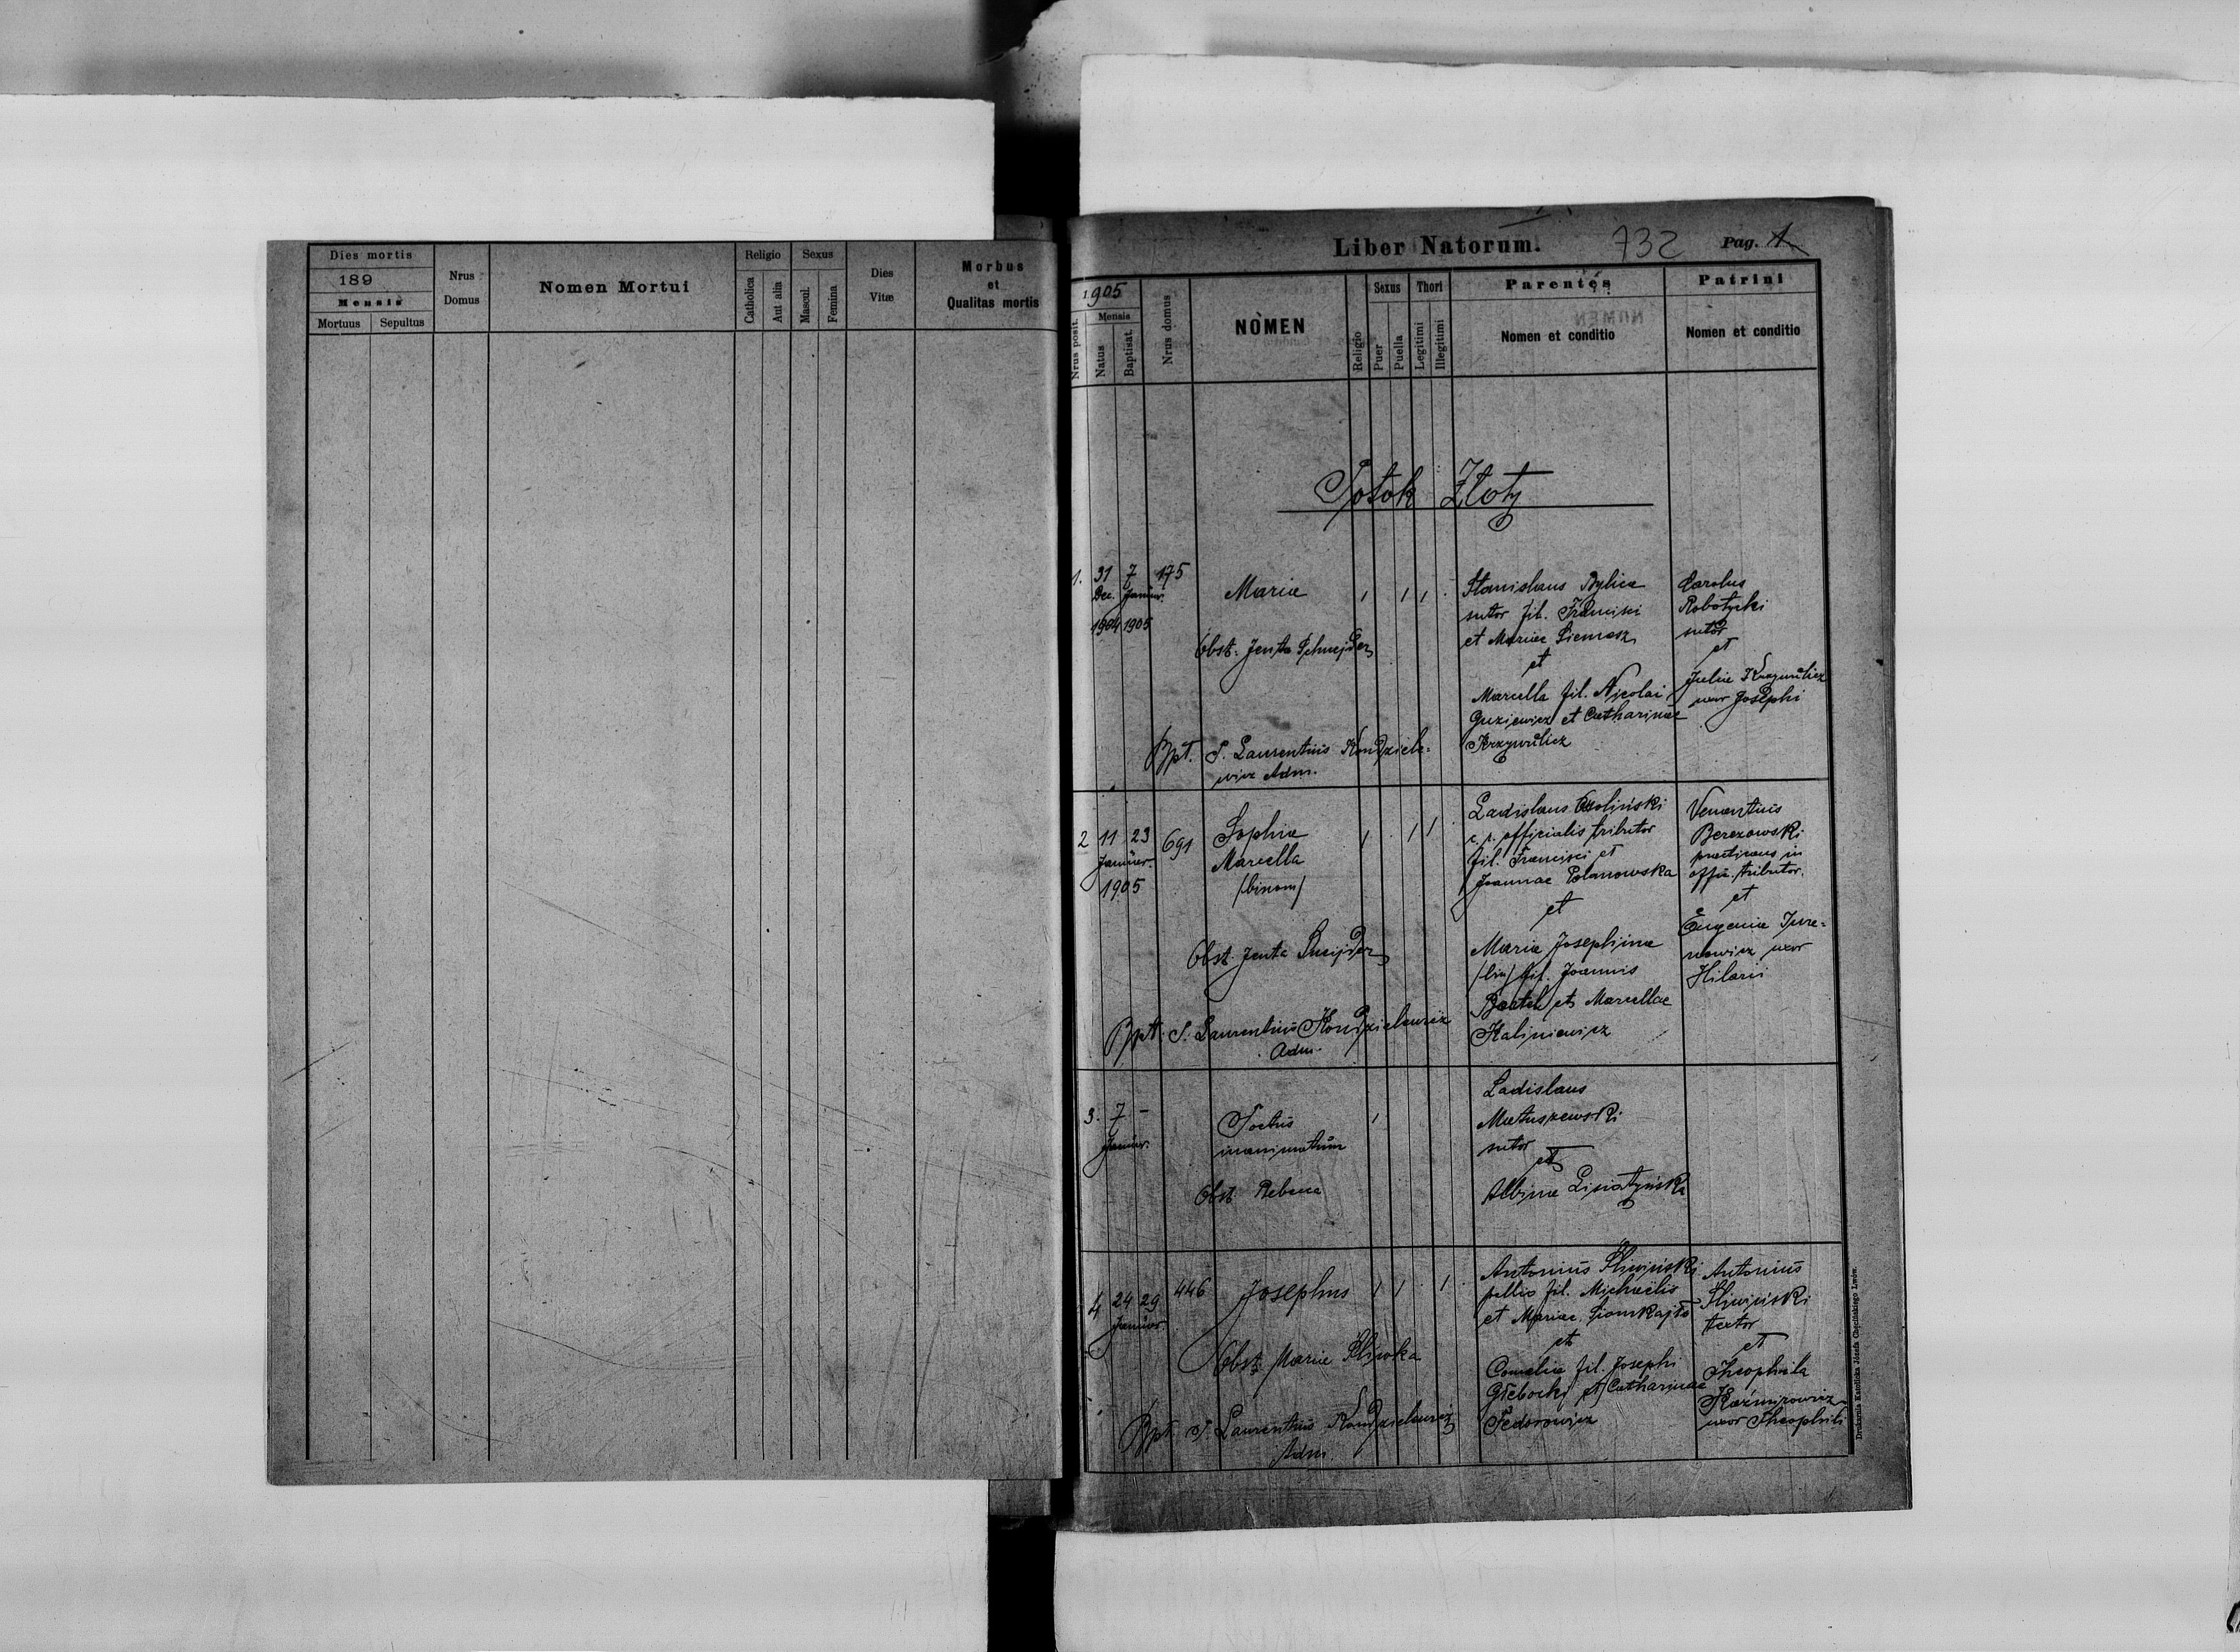 Dies mortis
189
Mensis
Mortuus Sepultus
Nrus Domus
Nomen Mortui
Religio
Catholica
Aut alia
Sexus
Mascul.
Femina
Dies Vitæ
Morbus
et
Qualitas mortis
Liber Natorum.
732
Pag. 1
1905
Mensis
Nrus posit.
Natus
Baptisat.
Nrus domus
NOMEN
Religio
Sexus
Puer
Puella
Thori
Legitimi
Illegitimi
Parentes
Nomen et conditio
Patrini
Nomen et conditio
Potok Złoty
1. 31 7 175
Dec. Januar.
1904 1905
Maria
Obst. Jenta Schnejder
Bpt. S. Laurentius Kondziele-
wicz Adm.
Stanislaus Bylica
sutor fil. Francisci
et Mariae Siemasz
et
Marcella fil. Nicolai
Guziewicz et Catharinae
Krzywulicz
Carolus
Robotycki
sutor
et
Julia Krzywulicz
uxor Josephi
2 11 23 691
Januar.
1905
Sophia
Marcella
/binom/
Obst. Jenta Sneijder
Bpt. S. Laurentius Kondzielewicz
Adm.
Ladislaus
c. r. officialis tributor
fil. Francisci et
Joannae Polanowska
et
Maria Josephina
/bin/ fil. Joannis
Bartel et Marcellae
Kaliniewicz
Venantius
Berezowski
practicans in
offic. tributor.
et
Eugenia Jure-
nowicz uxor
Hilarii
3. 7 -
Januar.
Foetus
inanimatum
Obst. Rebeca
Ladislaus
Matuszewski
sutor
et
Albina Lisiatyński
4 24 29 446
Januar.
Josephus
Obst. Maria Śliwka
Bpt. S. Laurentius Kondzielewicz
Adm.
Antonius Śliwiński
pellio fil. Michaelis
et Mariae
et
Cornelia fil. Josephi
Głębocki et Catharinae
Fedorowicz
Antonius
Śliwiński
textor
et
Theophila
Kaźmirowicz
uxor Theophili
Drukarnia Katolicka Józefa Chęcińskiego Lwów.